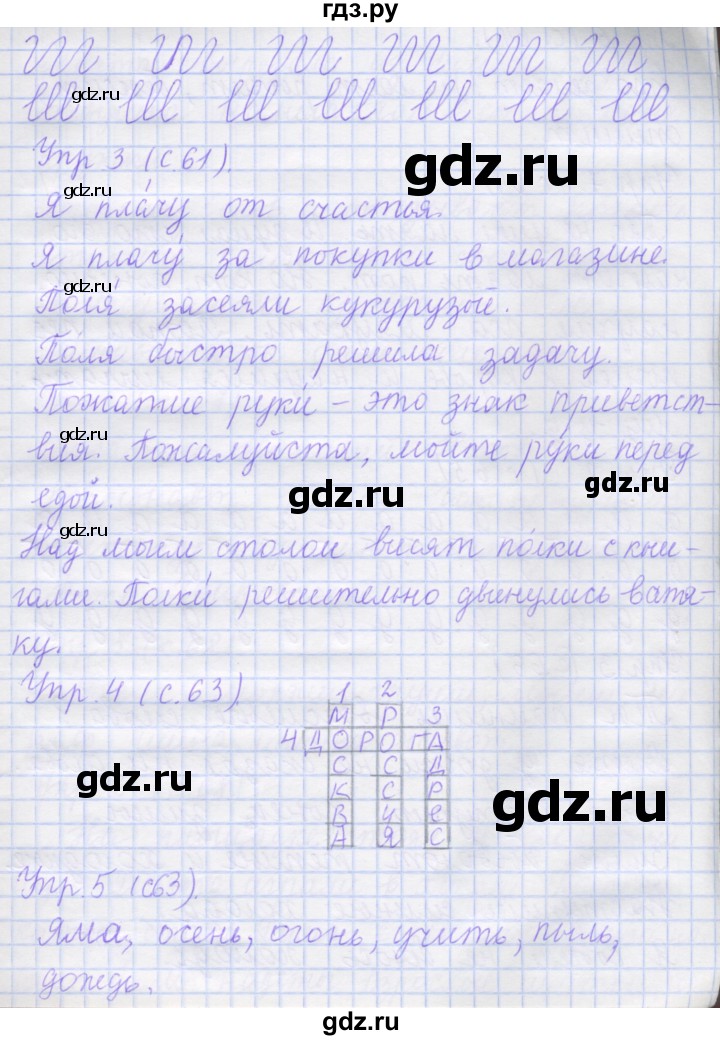 гдз.ру
gdz.ru
Упр 3 (с.61).
gdz.ru
gdz.ru
Я пла́чу от счастья.
Я плачу́ за покупки в магазине.
gdz.ru
Поля́ засеяли кукурузой.
По́ля быстро решила задачу.
Пожатие руки́ – это знак приветст-
gdz.ru
вия. Пожалуйста, мойте ру́ки перед
gdz.ru
едой.
gdz.ru
gdz.ru
Над моим столом висят по́лки с кни-
гами. Полки́ решительно двинулись в ата-
ку.
Упр. 4 (с. 63).
1 2
М Р 3
4 ДОРОГА
С С Д
gdz.ru
К С Р
gdz.ru
В И Е
А Я С
Упр. 5 (с63).
Яма, осень, огонь, учить, пыль,
дождь.
gdz.ru